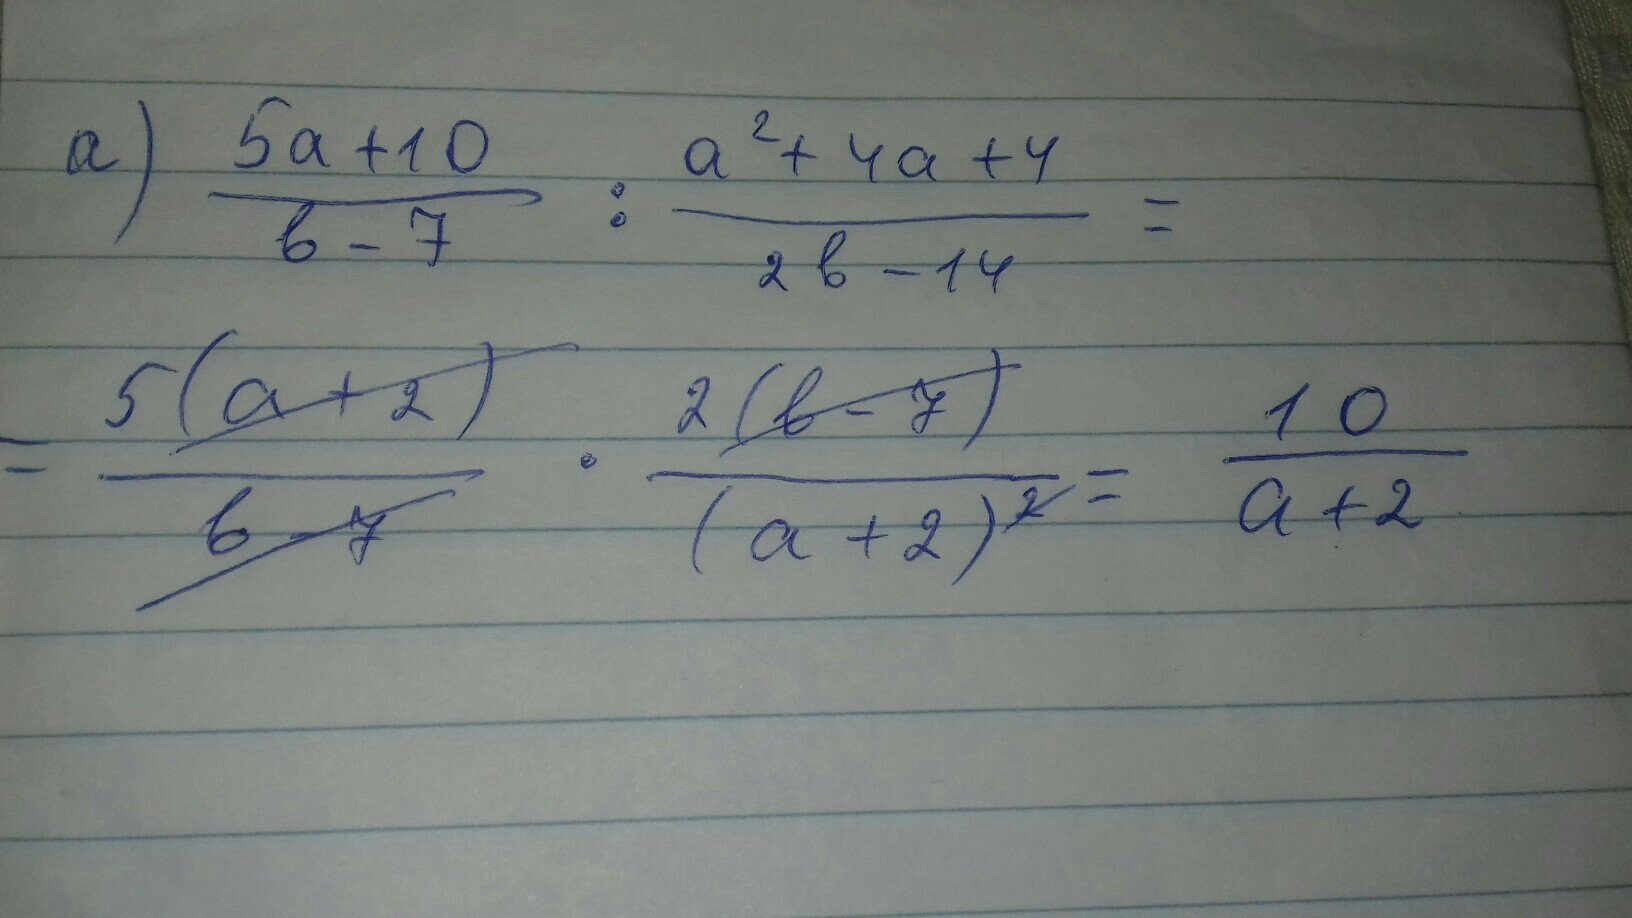 а) (5a+10)/(b-7) : (a²+4a+4)/(2b-14) =
= 5(a+2)/(b-7) · 2(b-7)/(a+2)² = 10/(a+2)